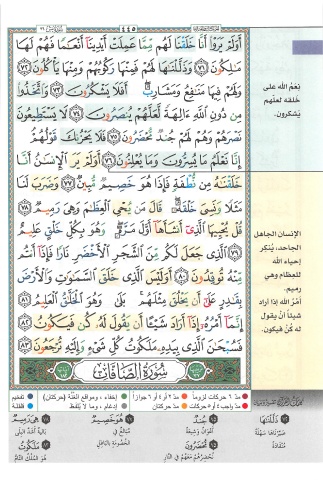 ٤٤٥
أَوَلَمْ يَرَوْا۟ أَنَّا خَلَقْنَا لَهُم مِّمَّا عَمِلَتْ أَيْدِينَآ أَنْعَٰمًا فَهُمْ لَهَا
مَٰلِكُونَ ٧١ وَذَلَّلْنَٰهَا لَهُمْ فَمِنْهَا رَكُوبُهُمْ وَمِنْهَا يَأْكُلُونَ ٧٢
وَلَهُمْ فِيهَا مَنَٰفِعُ وَمَشَارِبُ ۖ أَفَلَا يَشْكُرُونَ ٧٣ وَٱتَّخَذُوا۟
مِن دُونِ ٱللَّهِ ءَالِهَةً لَّعَلَّهُمْ يُنصَرُونَ ٧٤ لَا يَسْتَطِيعُونَ
نَصْرَهُمْ وَهُمْ لَهُمْ جُندٌ مُّحْضَرُونَ ٧٥ فَلَا يَحْزُنكَ قَوْلُهُمْ ۘ
إِنَّا نَعْلَمُ مَا يُسِرُّونَ وَمَا يُعْلِنُونَ ٧٦ أَوَلَمْ يَرَ ٱلْإِنسَٰنُ أَنَّا
خَلَقْنَٰهُ مِن نُّطْفَةٍ فَإِذَا هُوَ خَصِيمٌ مُّبِينٌ ٧٧ وَضَرَبَ لَنَا
مَثَلًا وَنَسِىَ خَلْقَهُۥ ۖ قَالَ مَن يُحْىِ ٱلْعِظَٰمَ وَهِىَ رَمِيمٌ ٧٨
قُلْ يُحْيِيهَا ٱلَّذِىٓ أَنشَأَهَآ أَوَّلَ مَرَّةٍ ۖ وَهُوَ بِكُلِّ خَلْقٍ عَلِيمٌ ٧٩
ٱلَّذِى جَعَلَ لَكُم مِّنَ ٱلشَّجَرِ ٱلْأَخْضَرِ نَارًا فَإِذَآ أَنتُم
مِّنْهُ تُوقِدُونَ ٨٠ أَوَلَيْسَ ٱلَّذِى خَلَقَ ٱلسَّمَٰوَٰتِ وَٱلْأَرْضَ
بِقَٰدِرٍ عَلَىٰٓ أَن يَخْلُقَ مِثْلَهُم ۚ بَلَىٰ وَهُوَ ٱلْخَلَّٰقُ ٱلْعَلِيمُ ٨١
إِنَّمَآ أَمْرُهُۥٓ إِذَآ أَرَادَ شَيْـًٔا أَن يَقُولَ لَهُۥ كُن فَيَكُونُ ٨٢
فَسُبْحَٰنَ ٱلَّذِى بِيَدِهِۦ مَلَكُوتُ كُلِّ شَىْءٍ وَإِلَيْهِ تُرْجَعُونَ ٨٣
سُورَةُ الصَّافَّاتِ
نِعَمُ الله على
خلقه لعلهم
يشكرون.
الإنسان الجاهل
الجاحد، يُنكر
إحياء الله
للعظام وهي
رميم.
أمْرُ الله إذا أراد
شيئاً أن يقول
له كُنْ فيكون.
مدّ ٦ حركات لزوماً
مدّ ٢ أو ٤ أو ٦ جوازاً
إخفاء، ومواقع الغُنَّة (حركتان)
تفخيم
مدّ واجب ٤ أو ٥ حركات
مدّ حركتان
إدغام، وما لا يُلفَظ
قلقلة
ذَلَّلْنَاهَا
جُندٌ
هُوَ خَصِيمٌ
هِيَ رَمِيمٌ
مُحْضَرُونَ
مَلَكُوتُ